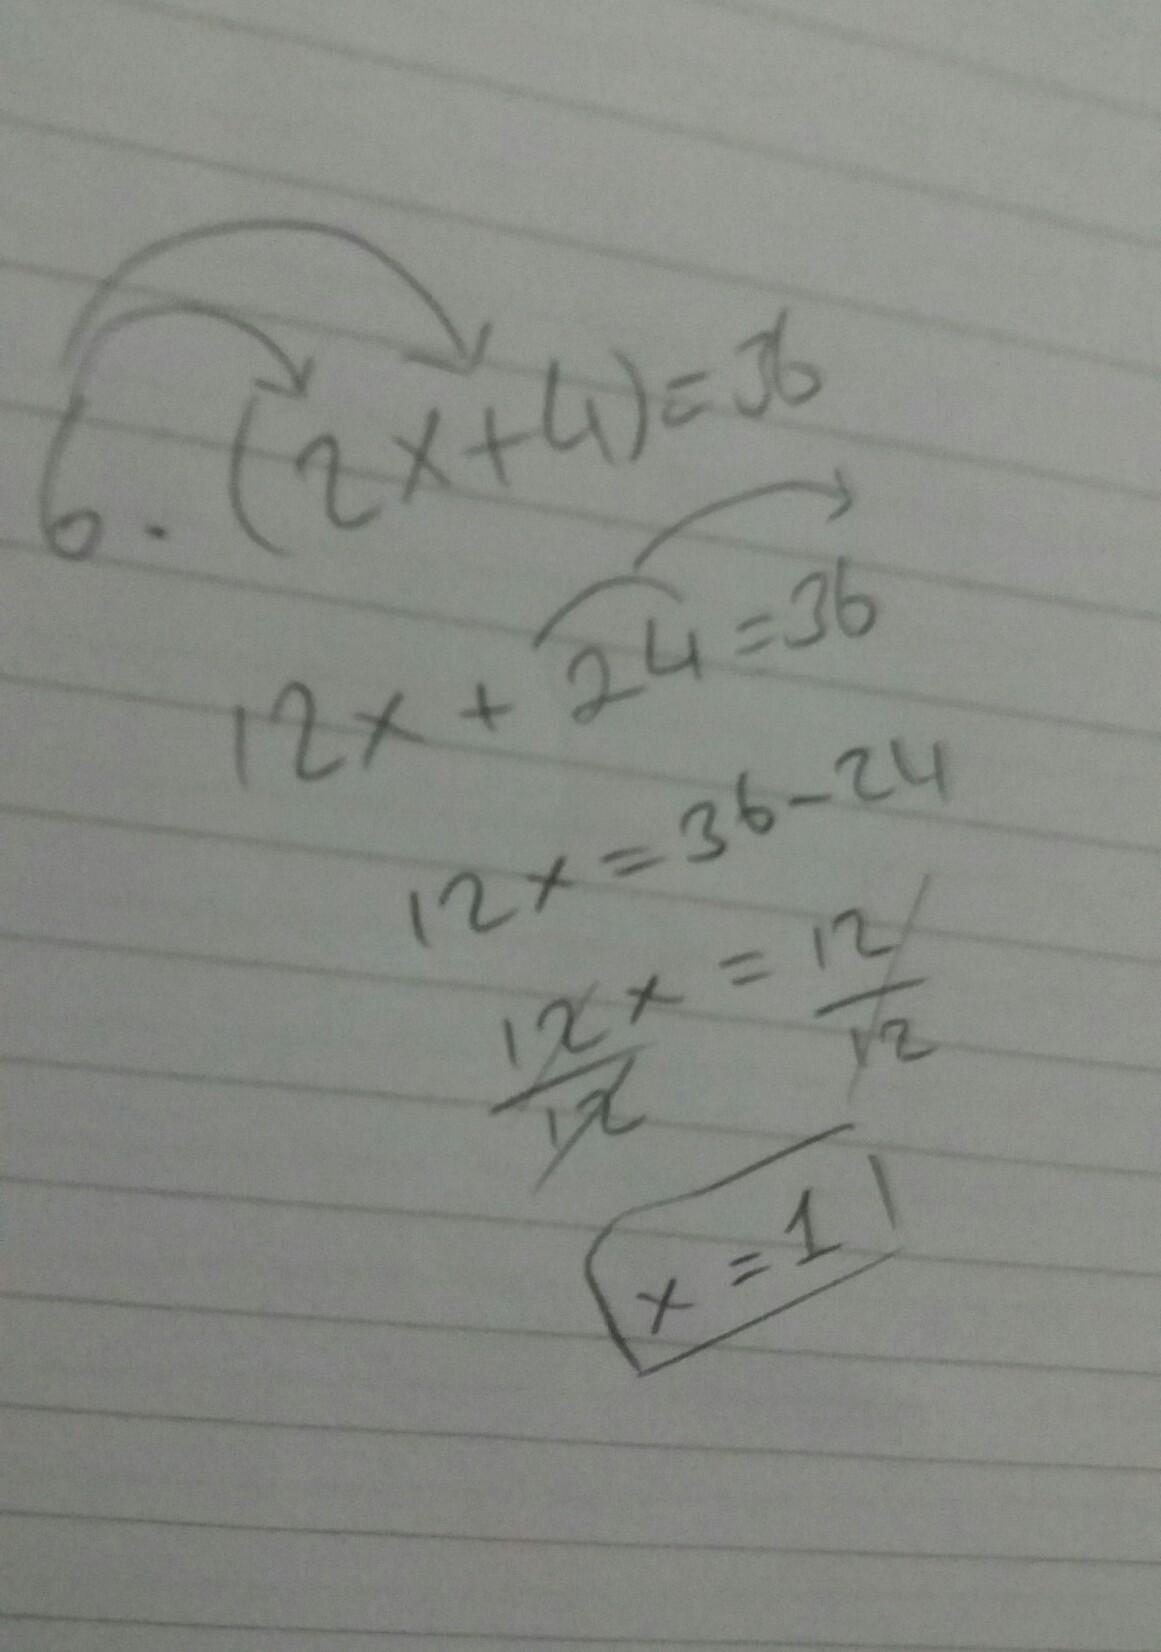 6.(2x+4)=36
12x+24=36
12x=36-24
12x/12=12/12
x=1